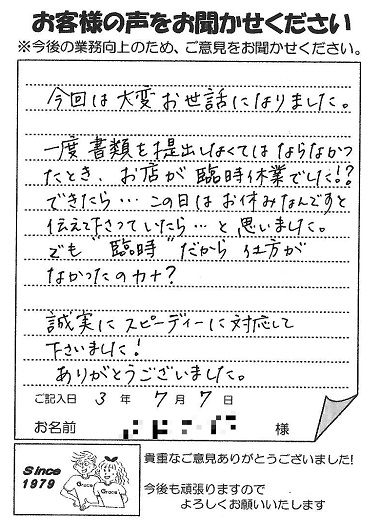 お客様の声をお聞かせください
※今後の業務向上のため、ご意見をお聞かせください。
今回は大変お世話になりました。
一度書類を提出しなくてはならなかっ
たとき、お店が臨時休業でした!?
できたら…この日はお休みなんですと
伝えて下さっていたら…と思いました。
でも"臨時"だから仕方が
なかったのカナ?
誠実にスピーディーに対応して
下さいました!
ありがとうございました。
ご記入日 3 年 7 月 7 日
お名前 様
Since
1979
Grace
Grace
貴重なご意見ありがとうございました!
今後も頑張りますので
よろしくお願いいたします